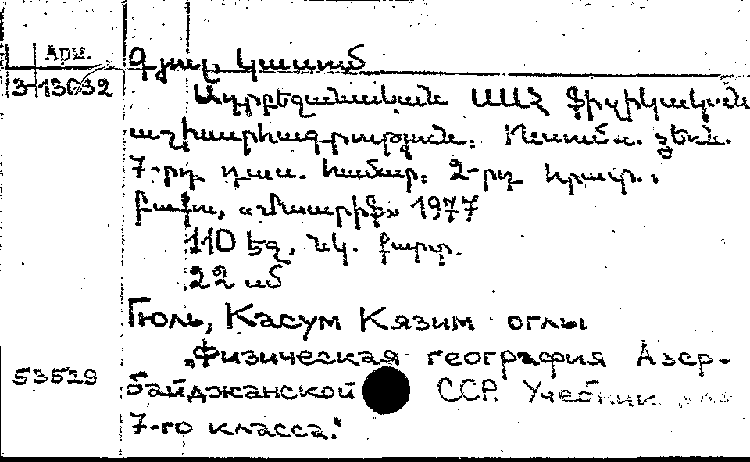 Арм.
Գյուլ, Կասում
3-13032
Ադրբեջանական ՍՍՀ ֆիզիկական
աշխարհագրություն: Ուսումն. ձեռն.
7-րդ դաս. համար: 2-րդ հրատ.:
Բաքու, «Մաարիֆ» 1977
110 եջ, նկ. քարտ.
22 սմ
Гюль, Касум Кязим оглы
„Физическая география Азер-
53529 байджанской ССР. Учебник для
7-го класса."